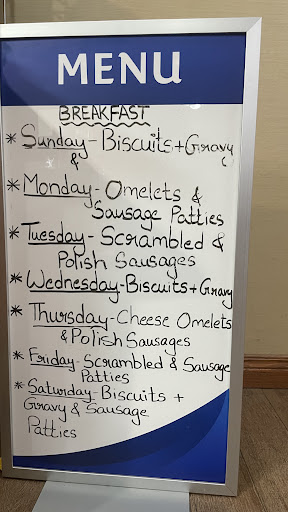 MENU
BREAKFAST
* Sunday - Biscuits + Gravy
&
* Monday - Omelets &
Sausage Patties
* Tuesday - Scrambled &
Polish Sausages
* Wednesday - Biscuits + Gravy
* Thursday - Cheese Omelets
& Polish Sausages
* Friday - Scrambled & Sausage
Patties
* Saturday - Biscuits +
Gravy & Sausage
Patties